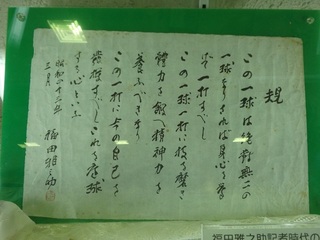 規
この一球は絶対無二の
一球なりされば身心を挙
げて一打すべし
この一球一打に技を磨き
体力を鍛へ精神力を
養ふべきなり
この一打に今の自己を
発揮すべしこれを庭球
する心といふ
昭和四十二年
三月
福田雅之助
福田雅之助記者時代の